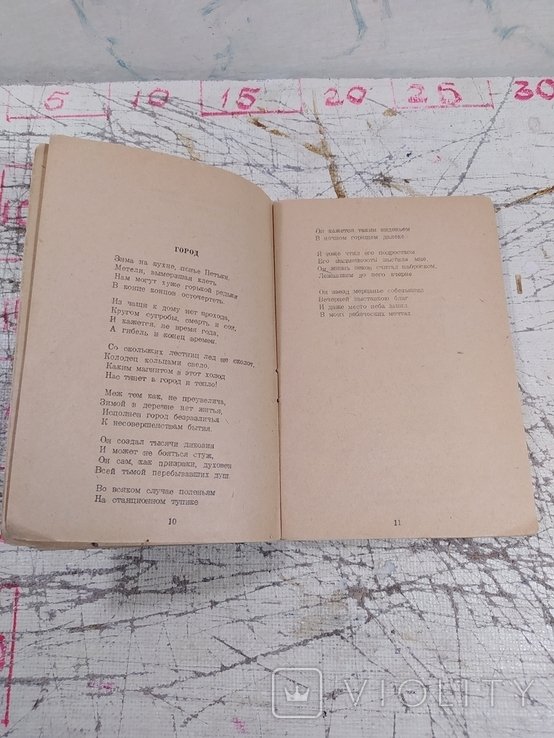 5 10 15 20 25 30
ГОРОД
Зима на кухне, пенье Петьки,
Метели, вымерзшая клеть
Нам могут хуже горькой редьки
В конце концов осточертеть.
Из чащи к дому нет прохода,
Кругом сугробы, смерть и сон,
И кажется, не время года,
А гибель и конец времен.
Со скользких лестниц лед не сколот,
Колодец кольцами свело.
Каким магнитом в этот холод
Нас тянет в город и тепло!
Меж тем как, не преувелича,
Зимой в деревне нет житья,
Исполнен город безразличья
К несовершенствам бытия.
Он создал тысячи диковин
И может не бояться стуж,
Он сам, как призраки, духовен
Всей тьмой перебывавших душ
Во всяком случае поленьям
На станционном тупике
10
Он кажется таким виденьем
В ночном горящем далеке.
И тоже чтил его подростком
Его надменность льстила мне
Он жизнь веков считал наброском,
Лежавшим до него вчерне.
Он звезд мерцанье
Вечерней выставкою благ
И даже место неба занял
В моих ребяческих мечтах
11
VIOLITY